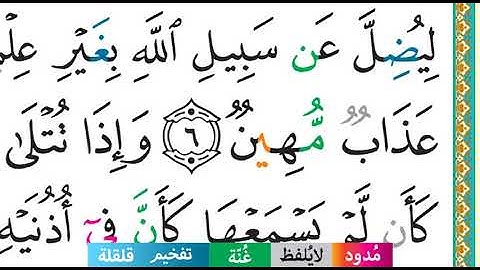 لِيُضِلَّ عَن سَبِيلِ ٱللَّهِ بِغَيْرِ عِلْمٍ
عَذَابٌ مُّهِينٌ ٦ وَإِذَا تُتْلَىٰ
كَأَن لَّمْ يَسْمَعْهَا كَأَنَّ فِىٓ أُذُنَيْهِ
مُدود لايُلفظ غُنّة تفخيم قلقلة